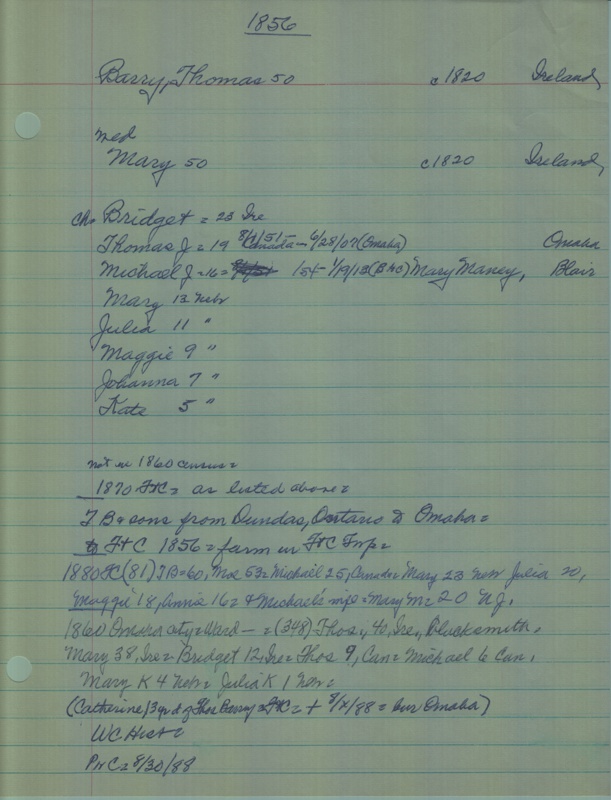 1856
Barry, Thomas 50 c1820 Ireland
med
Mary 50 c1820 Ireland
ch= Bridget = 23 Ire
Thomas J = 19 8/1/51- Canada - 6/28/07 (Omaha) Omaha
Michael J = 16 = 1854- 1/19/13 (B&C) Mary Maney, Blair
Mary 13 Nebr
Julia 11 "
Maggie 9 "
Johanna 7 "
Kate 5 "
not in 1860 census=
1870 FtC= as listed above=
T B & sons from Dundas, Ontario to Omaha=
to FtC 1856= farm in FtC Twp=
1880 FC (81) TB=60, Moe 53= Michael 25, Canada= Mary 23 Nebr Julia 20,
Maggie 18, Annie 16= & Michael's wife= Mary M= 20 N.J.
1860 Omaha city= Ward — = (348) Thos., 40, Ire, Blacksmith,
Mary 38, Ire= Bridget 12, Ire= Thos 9, Can= Michael 6 Can,
Mary K 4 Nebr= Julia K 1 Nebr=
(Catherine) 3rd d of Thos Barry= FtC= + 8/ /88 = bur Omaha)
WC Hist=
PnC= 8/30/88